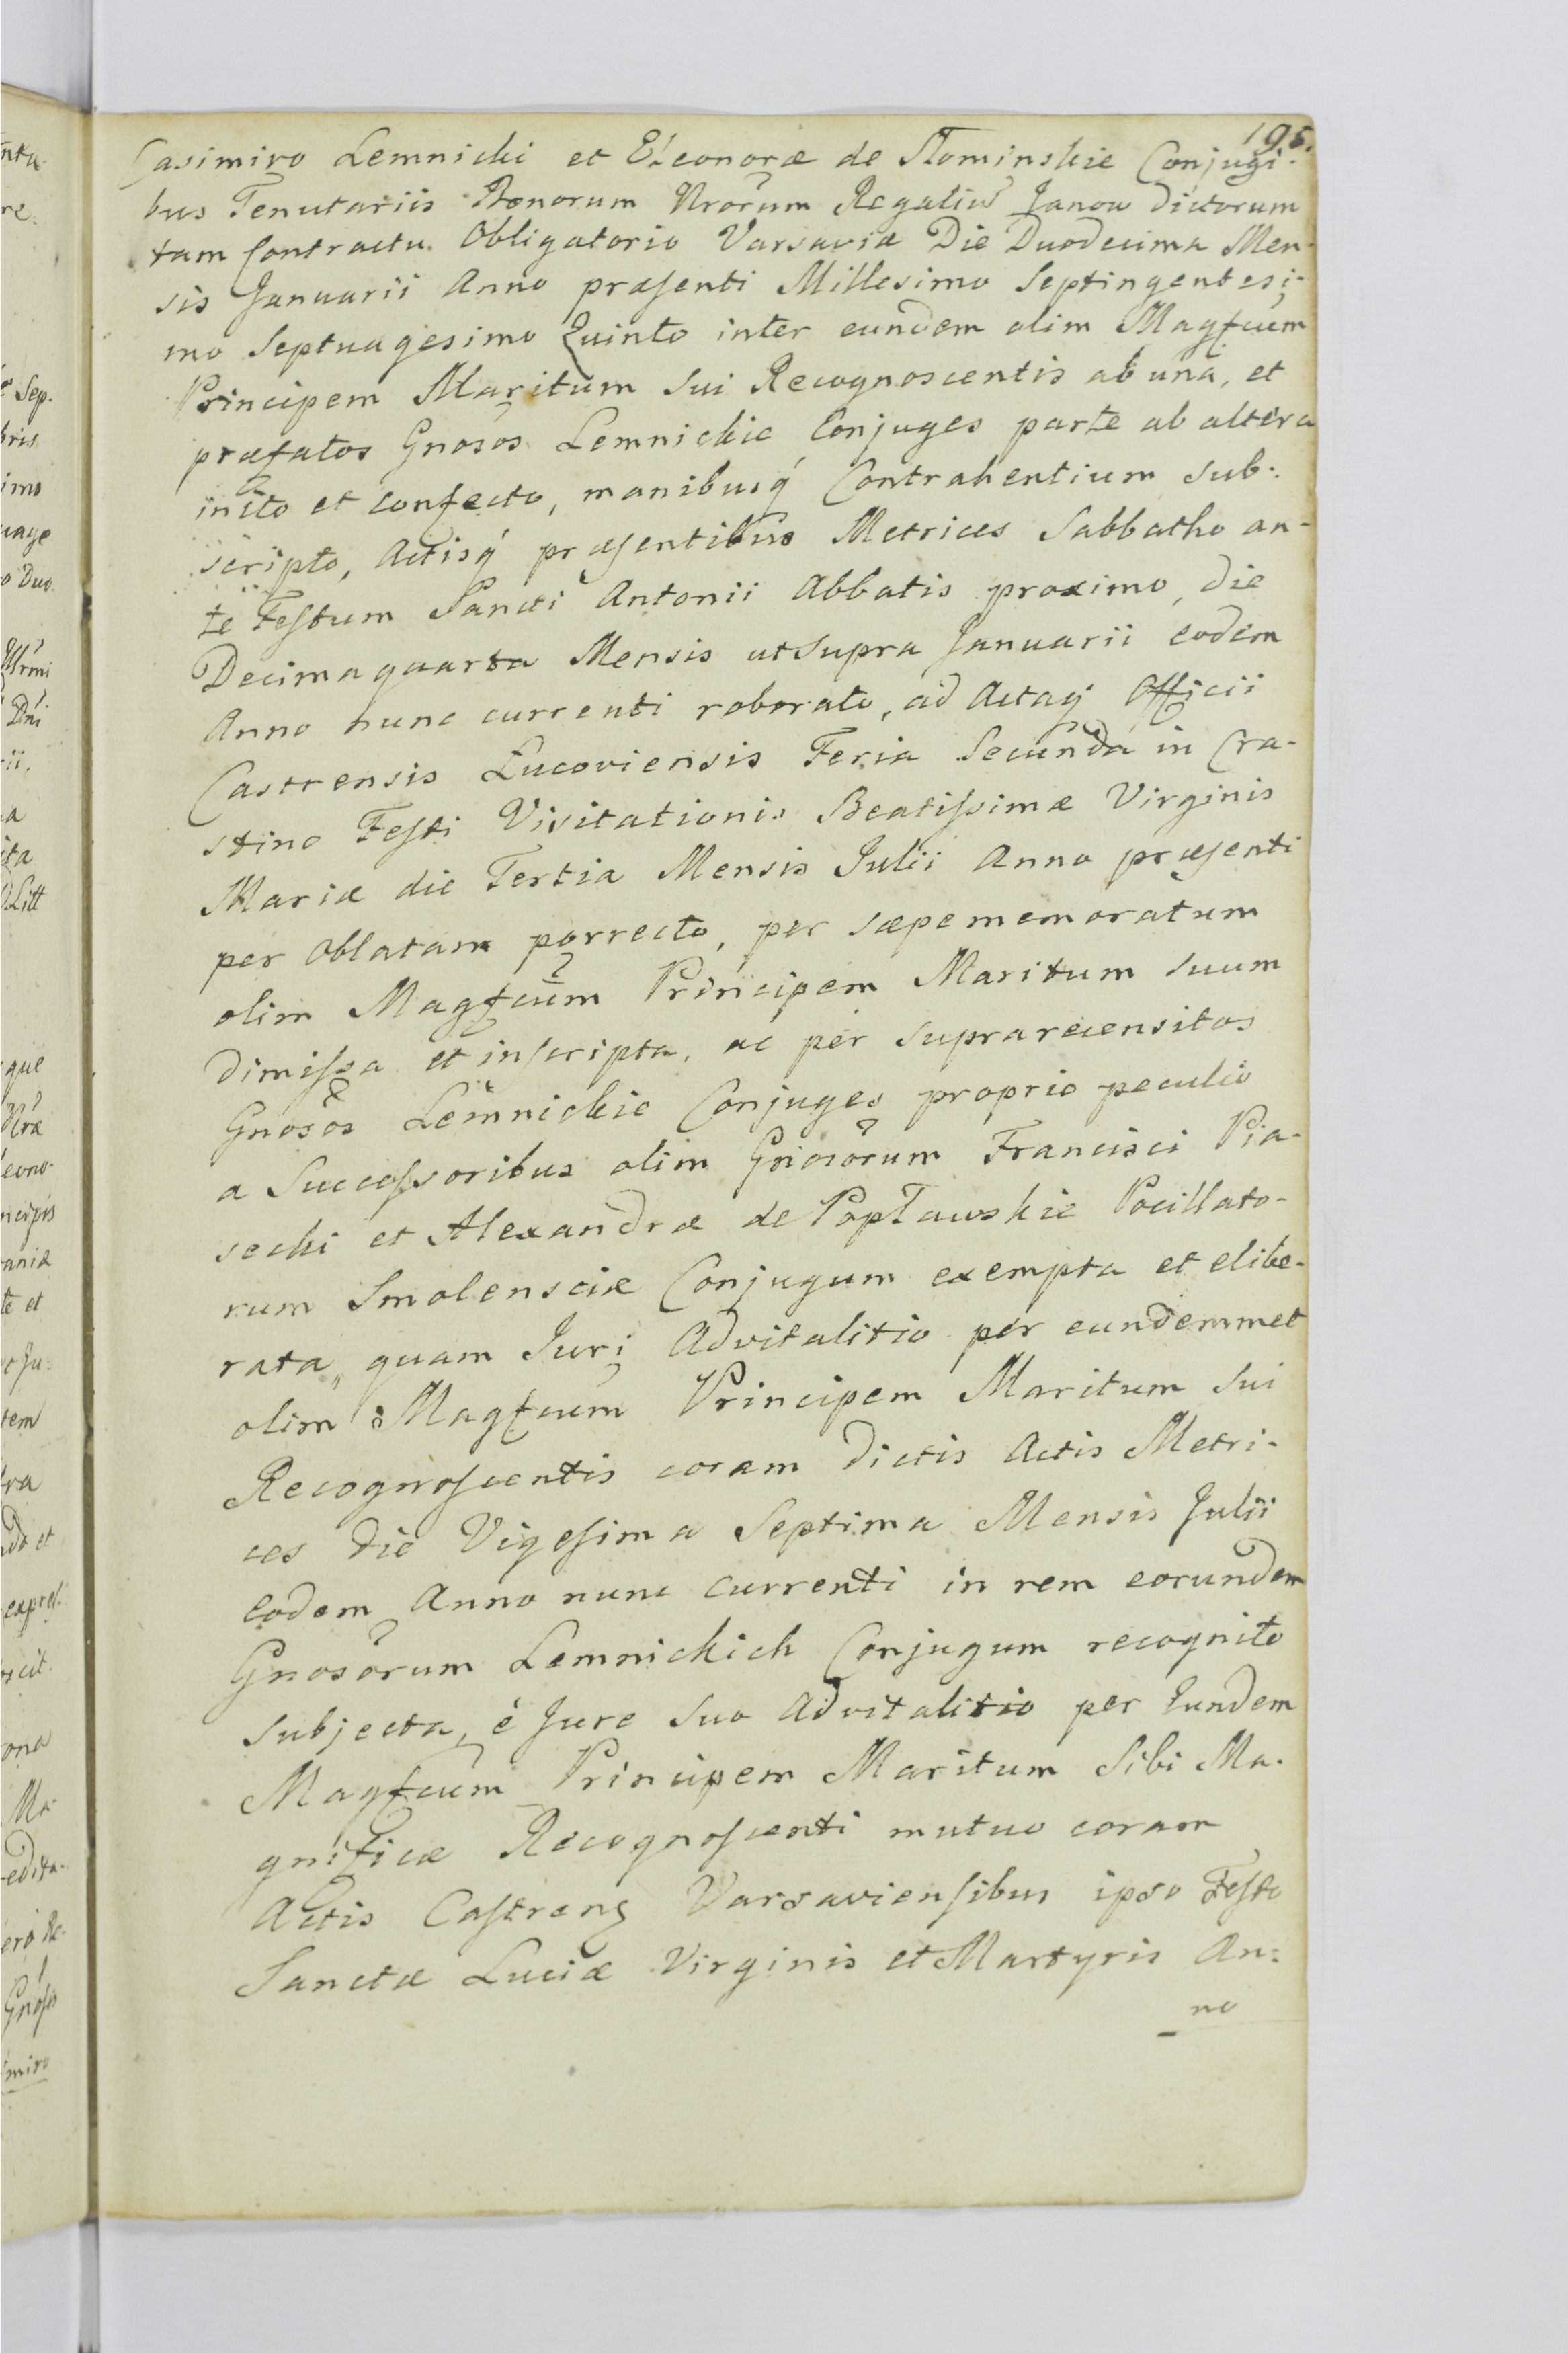 195.
Casimiro Lemnicki et Eleonoræ de Słominskie Conjugi-
bus Tenutariis Bonorum Nrorum Regaliũ Janow dictorum
tam Contractu Obligatorio Varsaviæ Die Duodecima Men-
sis Januarii Anno præsenti Millesimo Septingentesi-
mo Septuagesimo Quinto inter eundem olim Magfcum
Principem Maritum sui Recognoscentis ab una, et
præfatos Gnosos Lemnickie Conjuges parte ab altera
inito et confecto, manibusq́ Contrahentium sub:
scripto, Actisq́ præsentibus Metrices Sabbatho an-
te Festum Sancti Antonii Abbatis proximo, die
Decima quarta Mensis ut supra Januarii eodem
Anno nunc currenti roborato, ad Actaq́ Officii
Castrensis Lucoviensis Feria Secunda in Cra-
stino Festi Visitationis Beatissimæ Virginis
Mariæ die Tertia Mensis Julii Anno præsenti
per Oblatam porrecto, per sæpememoratum
olim Magfcum Principem Maritum suum
dimissa et inscripta, ac per suprarecensitos
Gnosos Lemnickie Conjuges proprio peculio
a Successoribus olim Gnosorum Francisci Pia-
secki et Alexandræ de Popławskie Pocillato-
rum Smolensciæ Conjugum exempta et elibe-
rata, quam Juri Advitalitio per eundemmet
olim Magfcum Principem Maritum sui
Recognoscentis coram dictis Actis Metri-
ces die Vigesima Septima Mensis Julii
eodem Anno nunc currenti in rem eorundem
Gnosorum Lemnickich Conjugum recognito
subjecta, è Jure suo Advitalitio per Eundem
Magfcum Principem Maritum sibi Ma-
gnificæ Recognoscenti mutuo coram
Actis Castrens Varsaviensibus ipso Festo
Sanctæ Luciæ Virginis et Martyris An:
no